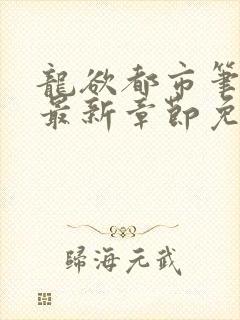 龍欲都市筆
最新章節免
歸海元武